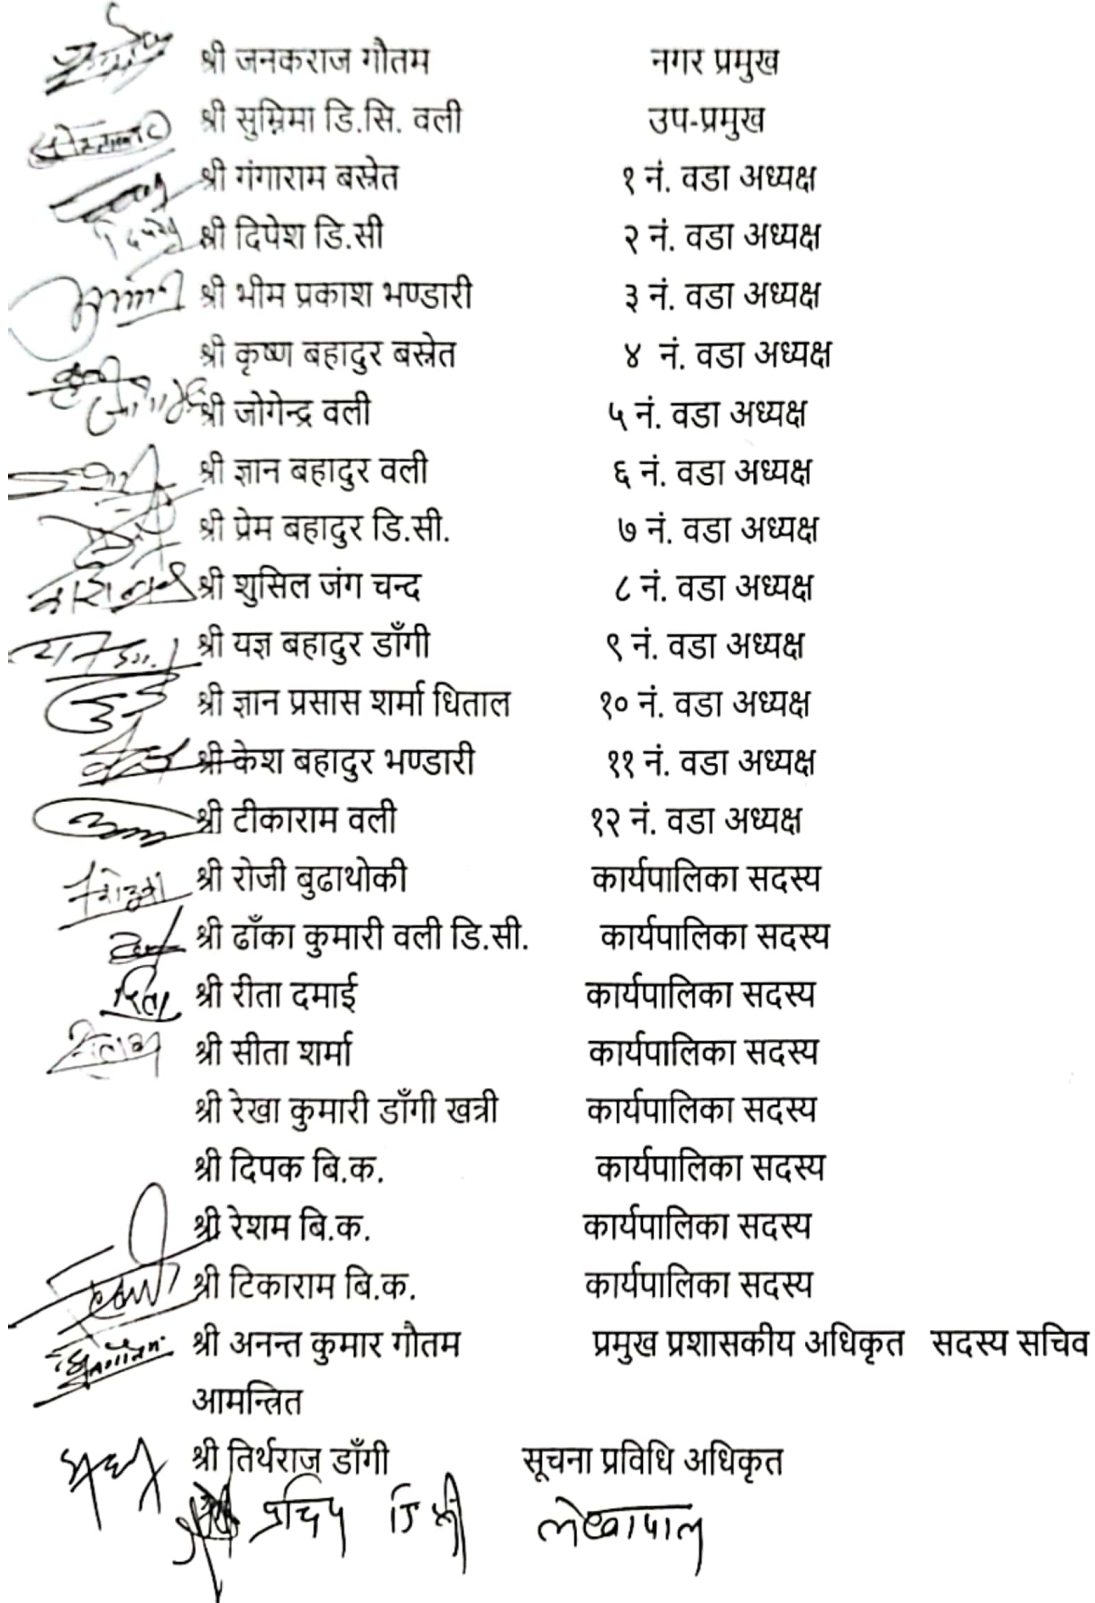 श्री जनकराज गौतम नगर प्रमुख
श्री सुम्निमा डि.सि. वली उप-प्रमुख
श्री गंगाराम बस्नेत १ नं. वडा अध्यक्ष
श्री दिपेश डि.सी २ नं. वडा अध्यक्ष
श्री भीम प्रकाश भण्डारी ३ नं. वडा अध्यक्ष
श्री कृष्ण बहादुर बस्नेत ४ नं. वडा अध्यक्ष
श्री जोगेन्द्र वली ५ नं. वडा अध्यक्ष
श्री ज्ञान बहादुर वली ६ नं. वडा अध्यक्ष
श्री प्रेम बहादुर डि.सी. ७ नं. वडा अध्यक्ष
श्री शुसिल जंग चन्द ८ नं. वडा अध्यक्ष
श्री यज्ञ बहादुर डाँगी ९ नं. वडा अध्यक्ष
श्री ज्ञान प्रसास शर्मा धिताल १० नं. वडा अध्यक्ष
श्री केश बहादुर भण्डारी ११ नं. वडा अध्यक्ष
श्री टीकाराम वली १२ नं. वडा अध्यक्ष
श्री रोजी बुढाथोकी कार्यपालिका सदस्य
श्री ढाँका कुमारी वली डि.सी. कार्यपालिका सदस्य
रिता श्री रीता दमाई कार्यपालिका सदस्य
श्री सीता शर्मा कार्यपालिका सदस्य
श्री रेखा कुमारी डाँगी खत्री कार्यपालिका सदस्य
श्री दिपक बि.क. कार्यपालिका सदस्य
श्री रेशम बि.क. कार्यपालिका सदस्य
श्री टिकाराम बि.क. कार्यपालिका सदस्य
श्री अनन्त कुमार गौतम प्रमुख प्रशासकीय अधिकृत सदस्य सचिव
आमन्त्रित
श्री तिर्थराज डाँगी सूचना प्रविधि अधिकृत
लेखापाल